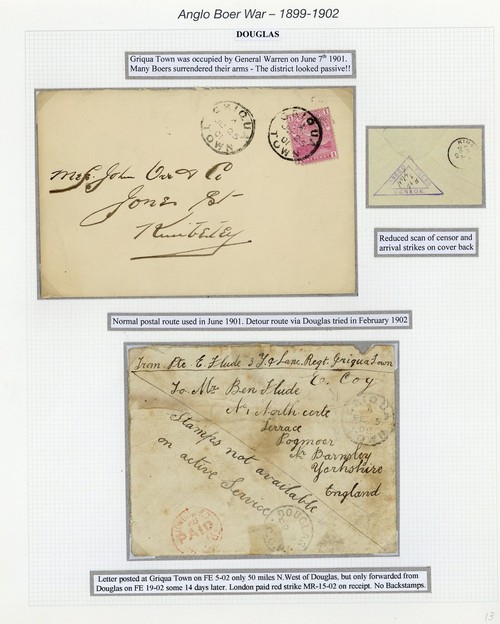 Anglo Boer War – 1899-1902
DOUGLAS
Griqua Town was occupied by General Warren on June 7th 1901.
Many Boers surrendered their arms - The district looked passive!!
GRIQUA
TOWN
GRIQUA
TOWN
Messrs John Orr & Co
Jones St
Kimberley
CENSOR
Reduced scan of censor and
arrival strikes on cover back
Normal postal route used in June 1901. Detour route via Douglas tried in February 1902
From Pte E. Flude 3 Y. & Lanc. Regt. Griqua Town
C. Coy
To Mr Ben Flude
No 1 North
Terrace
Pogmoor
Nr Barnsley
Yorkshire
England
Stamps not available
on active Service
PAID
DOUGLAS
Letter posted at Griqua Town on FE 5-02 only 50 miles N.West of Douglas, but only forwarded from
Douglas on FE 19-02 some 14 days later. London paid red strike MR-15-02 on receipt. No Backstamps.
13